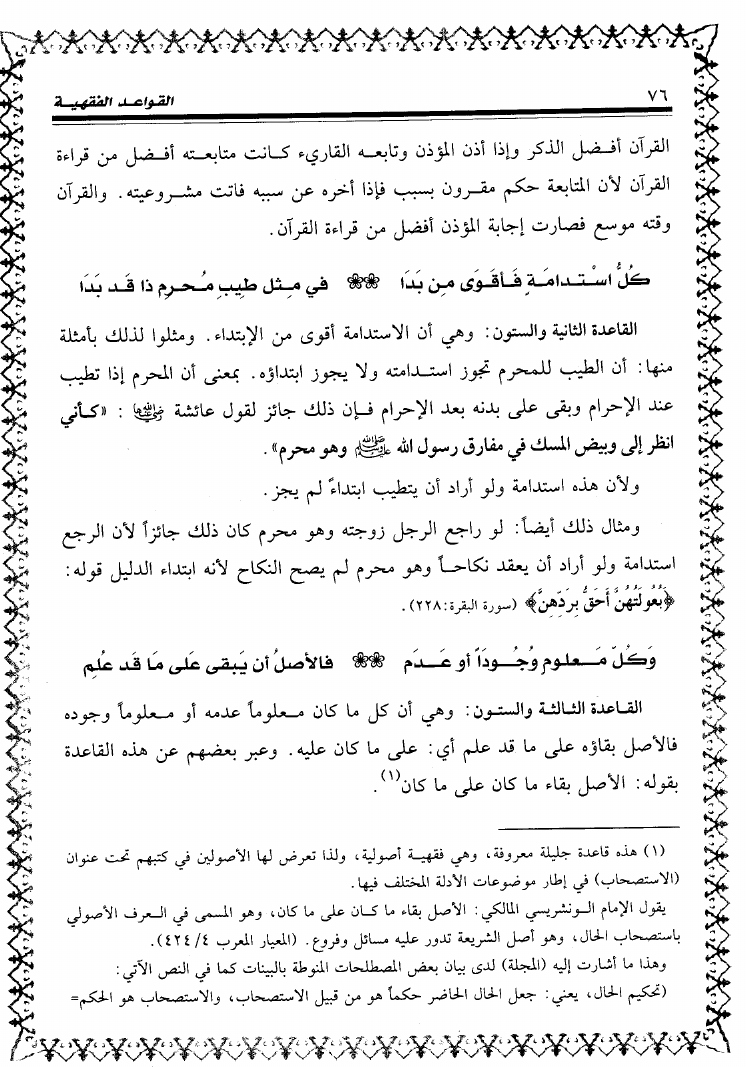 ٧٦
القواعد الفقهية
القرآن أفضل الذكر وإذا أذن المؤذن وتابعه القاريء كانت متابعته أفضل من قراءة
القرآن لأن المتابعة حكم مقرون بسبب فإذا أخره عن سببه فاتت مشروعيته. والقرآن
وقته موسع فصارت إجابة المؤذن أفضل من قراءة القرآن.
كُلُّ اسْتدامَةٍ فَأقوَى مِن بَدَا ❀❀ في مِثل طِيبِ مُحرِمٍ ذا قَد بَدَا
القاعدة الثانية والستون: وهي أن الاستدامة أقوى من الإبتداء. ومثلوا لذلك بأمثلة
منها: أن الطيب للمحرم تجوز استدامته ولا يجوز ابتداؤه. بمعنى أن المحرم إذا تطيب
عند الإحرام وبقى على بدنه بعد الإحرام فإن ذلك جائز لقول عائشة رضي الله عنها : «كأني
انظر إلى وبيض المسك في مفارق رسول الله ﷺ وهو محرم».
ولأن هذه استدامة ولو أراد أن يتطيب ابتداءً لم يجز.
ومثال ذلك أيضاً: لو راجع الرجل زوجته وهو محرم كان ذلك جائزاً لأن الرجع
استدامة ولو أراد أن يعقد نكاحاً وهو محرم لم يصح النكاح لأنه ابتداء الدليل قوله:
﴿بُعُولَتُهُنَّ أَحَقُّ بِرَدِّهِنَّ﴾ (سورة البقرة:٢٢٨).
وَكُلّ مَعلومٍ وُجُودَاً أو عَدَم ❀❀ فالأصلُ أن يَبقى عَلى مَا قَد عُلِم
القاعدة الثالثة والستون: وهي أن كل ما كان معلوماً عدمه أو معلوماً وجوده
فالأصل بقاؤه على ما قد علم أي: على ما كان عليه. وعبر بعضهم عن هذه القاعدة
بقوله: الأصل بقاء ما كان على ما كان(١).
(١) هذه قاعدة جليلة معروفة، وهي فقهية أصولية، ولذا تعرض لها الأصولين في كتبهم تحت عنوان
(الاستصحاب) في إطار موضوعات الأدلة المختلف فيها.
يقول الإمام الونشريسي المالكي: الأصل بقاء ما كان على ما كان، وهو المسمى في العرف الأصولي
باستصحاب الحال، وهو أصل الشريعة تدور عليه مسائل وفروع. (المعيار المعرب ٤/ ٤٢٤).
وهذا ما أشارت إليه (المجلة) لدى بيان بعض المصطلحات المنوطة بالبينات كما في النص الآتي:
(تحكيم الحال، يعني: جعل الحال الحاضر حكماً هو من قبيل الاستصحاب، والاستصحاب هو الحكم=